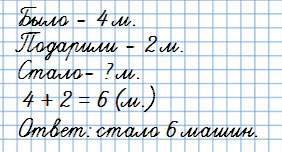 Было - 4 м.
Подарили - 2 м.
Стало- ? м.
4 + 2 = 6 (м.)
Ответ: стало 6 машин.